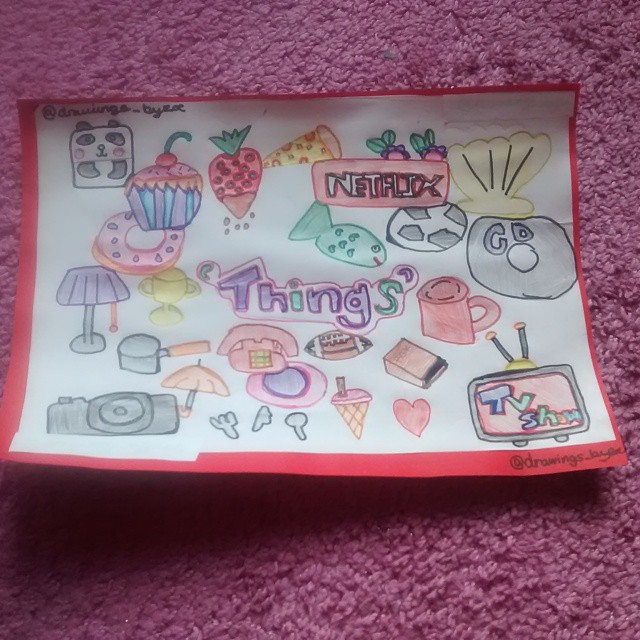 @drawings_byex
NETFLIX
CD
"Things"
TV
Show
@drawings_byex